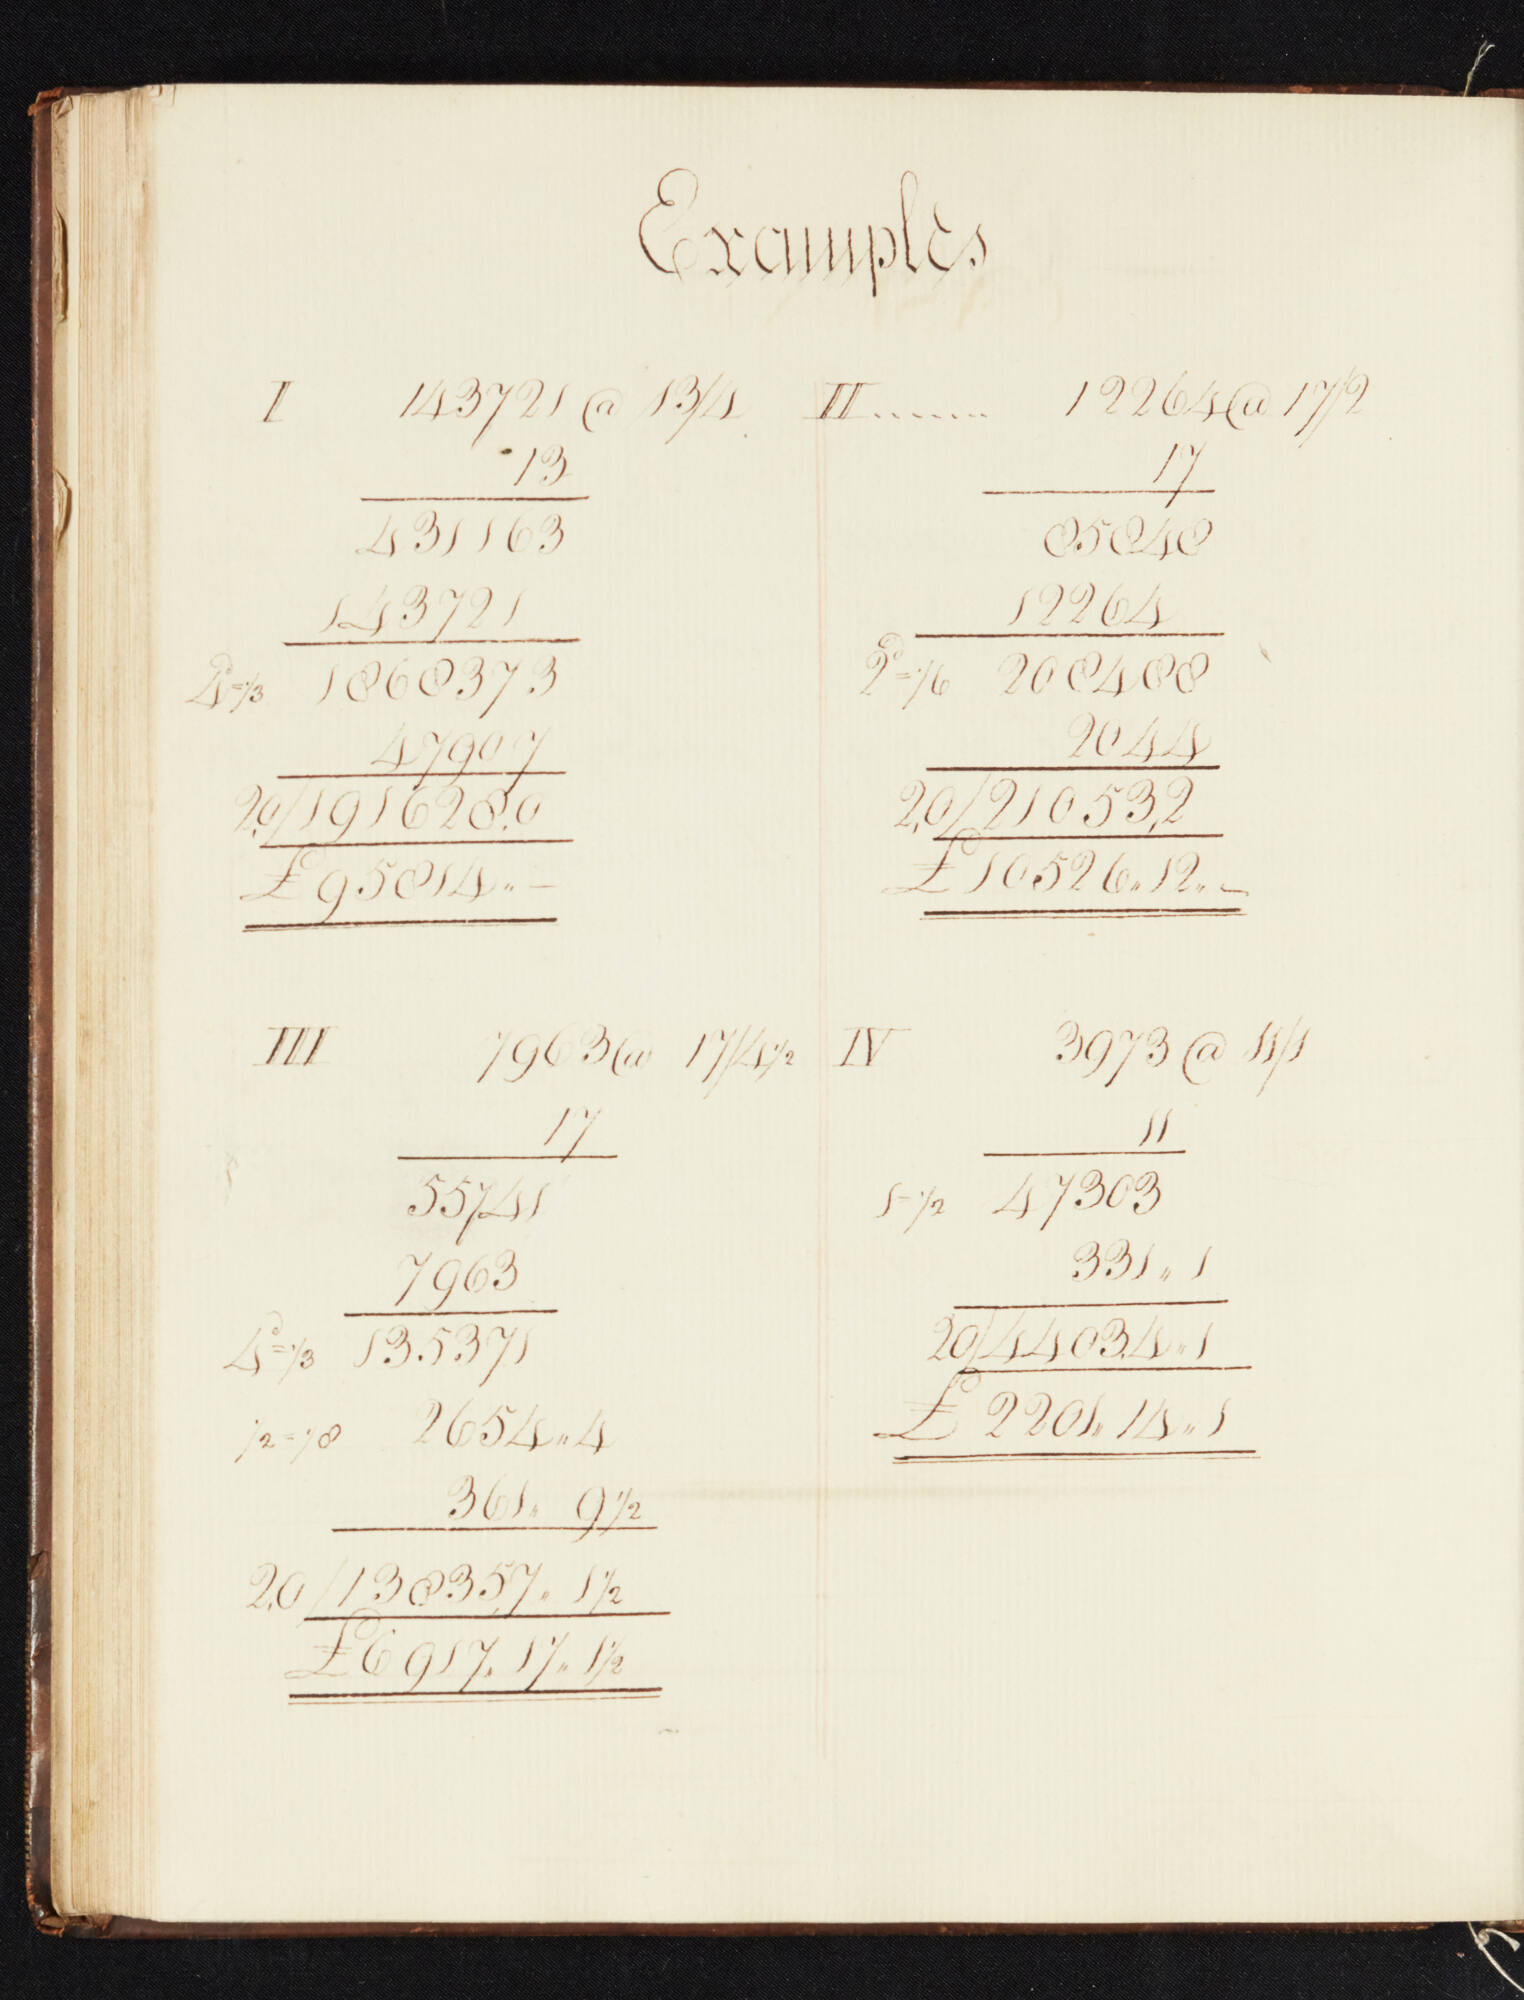 Examples
I 143721 @ 13/4
13
431163
143721
4d=1/3 1868373
47907
2,0/191628,0
£95814,, –
II....... 12264 @ 17/2
17
85848
12264
2d=1/6 208488
2044
2,0/21053,2
£10526,, 12,, –
III 7963 @ 17/4 1/2
17
55741
7963
4d=1/3 135371
1/2=1/8 2654,, 4
361,, 9 1/2
2,0/13835,7,, 1 1/2
£6917,, 17,, 1 1/2
IV 3973 @ 11/1
11
1=1/2 47303
331,, 1
20/4403,4,, 1
£2201,, 14,, 1